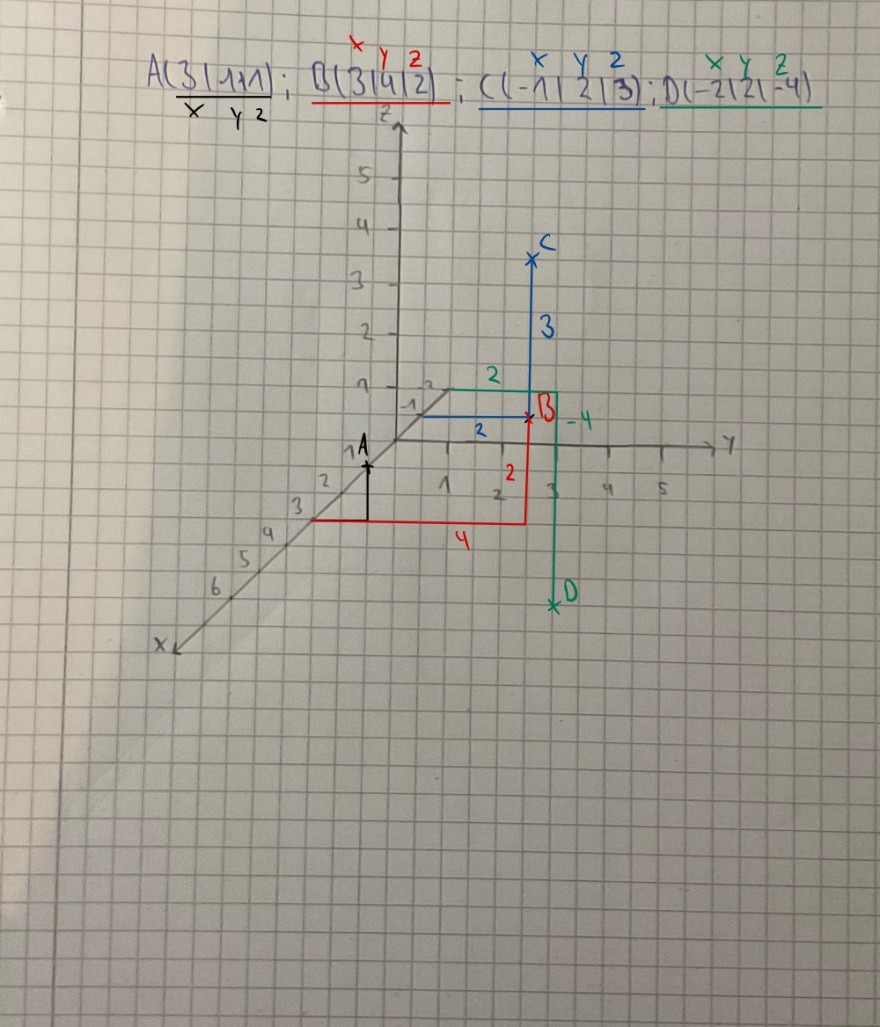 x y z x y z x y z
A(3|1|1); B(3|4|2); C(-1|2|3); D(-2|2|-4)
x y z
z
5
4
C
3
3
2
2
1
-2
-1
B
-4
2
y
A
1
2
1
2
3
4
5
2
3
4
4
5
6
D
x